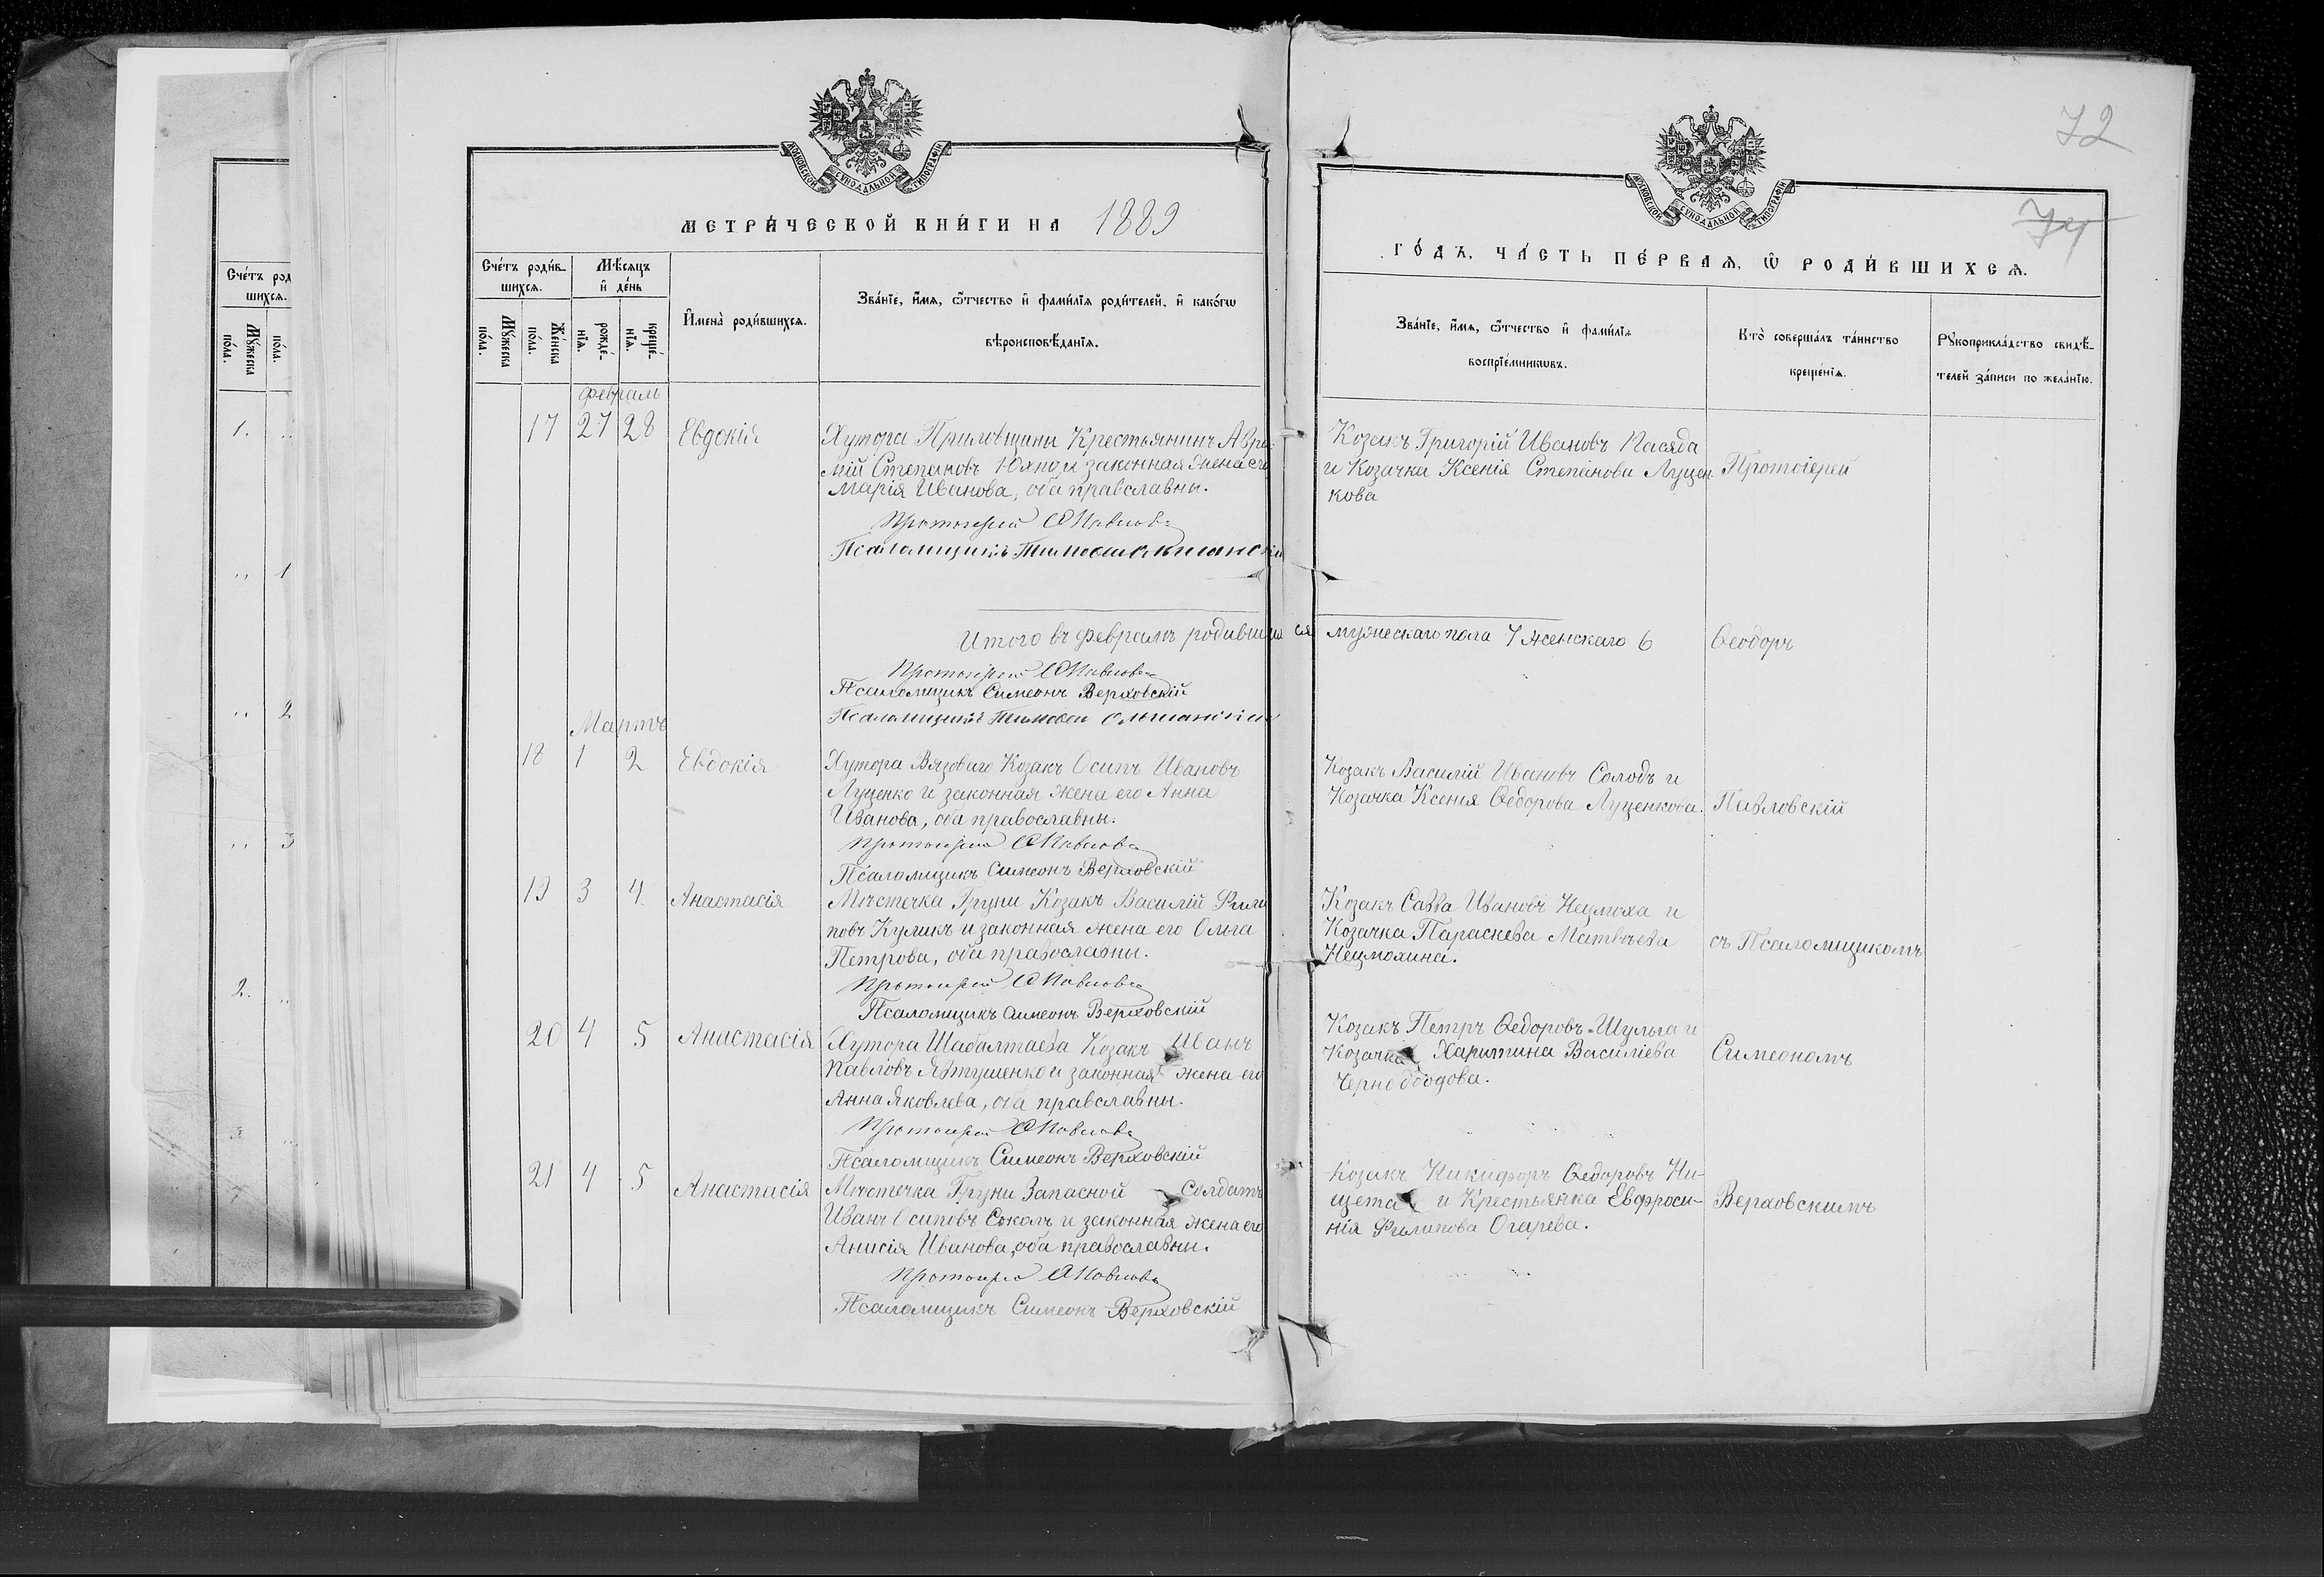 72
74
МОСКОВСКОЙ СѴНОДАЛЬНОЙ ТИПОГРАФІИ
МОСКОВСКОЙ СѴНОДАЛЬНОЙ ТИПОГРАФІИ
МЕТРИ́ЧЕСКОЙ КНИ́ГИ НА 1889
ГО́ДЪ, ЧА́СТЬ ПЕ́РВАѦ, Ѽ РОДИ́ВШИХСѦ.
Сче́тъ роди́в-
шихсѧ.
Мꙋ́жеска
по́ла.
Же́нска
по́ла.
Мѣ́сѧцъ
и҆ де́нь
рожде́-
нїѧ.
креще́-
нїѧ.
И҆мена̀ роди́вшихсѧ.
Зва́нїе, и҆́мѧ, ѻ҆́тчество и҆ фами́лїѧ роди́телей, и҆ како́гѡ
вѣроисповѣ́данїѧ.
Зва́нїе, и҆́мѧ, ѻ҆́тчество и҆ фами́лїѧ
воспрїе́мникѡвъ.
Кто̀ соверша́лъ та́инство
креще́нїѧ.
Рꙋкоприкла́дство свидѣ́-
телей за́писи по жела́нїю.
Сче́тъ род
шихсѧ.
Мꙋ́жеска
по́ла.
по́ла.
1. ..
.. 1
.. 2
.. 3
2. ..
Февраль
17 27 28 Евдокія
Хутора Приловщини Крестьянинъ Авра-
мій Степановъ Юхно и законная жена его
Марія Иванова, оба православны.
Протоіерей Ѳ Павловс
Псаломщикъ Тимоѳей Ольшанскій
Козакъ Григорій Ивановъ Пасяда
и Козачка Ксенія Степанова Луцен-
кова
Протоіерей
Итого въ Февралѣ родившихся мужескаго пола 7 женскаго 6
Ѳеодоръ
Протоіерей Ѳ Павловс
Псаломщикъ Симеонъ Верховскій
Псаломщикъ Тимоѳей Ольшанскій
Мартъ
18 1 2 Евдокія
Хутора Вязоваго Козакъ Осипъ Ивановъ
Луценко и законная жена его Анна
Иванова, оба православны.
Протоіерей Ѳ Павловс
Псаломщикъ Симеонъ Верховскій
Козакъ Василій Ивановъ Солодъ и
Козачка Ксенія Ѳедорова Луценкова.
Павловскій
19 3 4 Анастасія
Мѣстечка Груни Козакъ Василій Фили
повъ Куликъ и законная жена его Ольга
Петрова, оба православны.
Протоіерей Ѳ Павловс
Псаломщикъ Симеонъ Верховскій
Козакъ Савва Ивановъ Нецмоха и
Козачка Параскева Матвѣева
Нецмохина.
съ Псаломщикомъ
20 4 5 Анастасія
Хутора Шабалтаева Козакъ Иванъ
Павловъ Явтушенко и законная жена его
Анна Яковлева, оба православны.
Протоіерей Ѳ Павловс
Псаломщикъ Симеонъ Верховскій
Козакъ Петръ Ѳедоровъ Шульга и
Козачка Харитина Василіева
Симеономъ
21 4 5 Анастасія
Мѣстечка Груни Запасной Солдатъ
Иванъ Осиповъ Соколъ и законная жена его
Анисія Иванова, оба православны.
Протоіерей Ѳ Павловс
Псаломщикъ Симеонъ Верховскій
Козакъ Никифоръ Ѳедоровъ Ни-
щета и Крестьянка Евфроси-
нія Филипова Огарева.
Верховскимъ